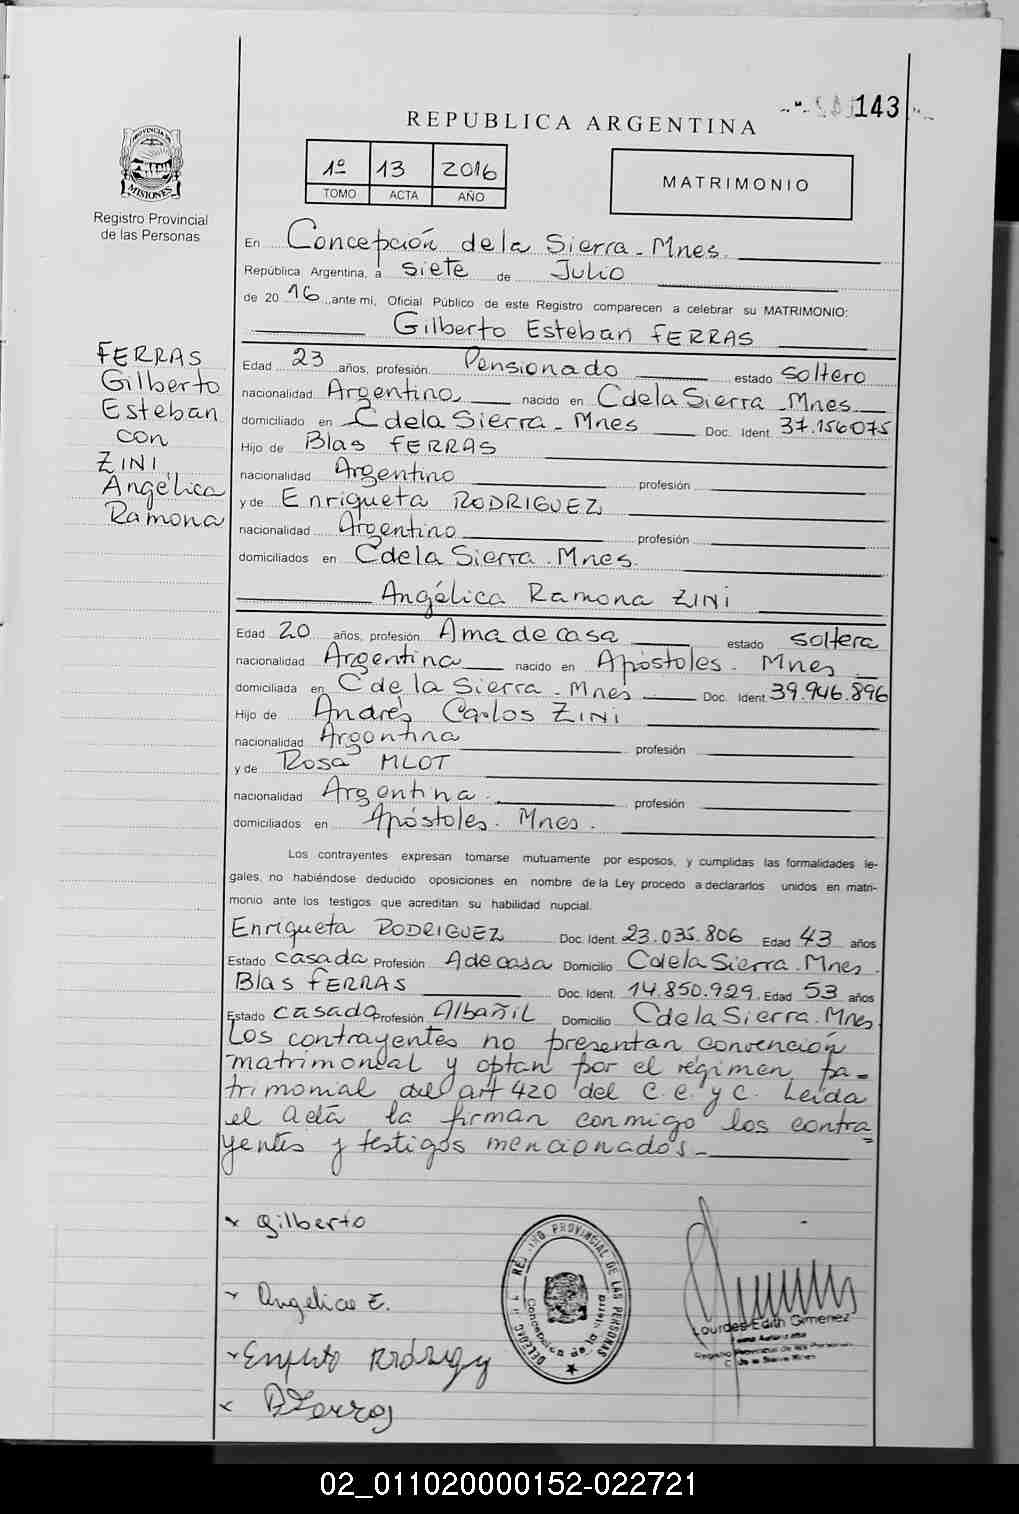 143
REPUBLICA ARGENTINA
PROVINCIA DE
MISIONES
Registro Provincial
de las Personas
1º 13 2016
TOMO ACTA AÑO
MATRIMONIO
En Concepción de la Sierra - Mnes.
República Argentina, a siete de Julio
de 20 16 ,ante mi, Oficial Público de este Registro comparecen a celebrar su MATRIMONIO:
Gilberto Esteban FERRAS
FERRAS
Gilberto
Esteban
con
ZINI
Angélica
Ramona
Edad 23 años, profesión Pensionado estado soltero
nacionalidad Argentino nacido en C de la Sierra - Mnes
domiciliado en C de la Sierra - Mnes Doc. Ident. 37.156075
Hijo de Blas FERRAS
nacionalidad Argentino profesión
y de Enriqueta RODRIGUEZ
nacionalidad Argentino profesión
domiciliados en C de la Sierra . Mnes.
Angélica Ramona ZINI
Edad 20 años, profesión Ama de casa estado soltera
nacionalidad Argentina nacido en Apóstoles - Mnes
domiciliada en C de la Sierra - Mnes Doc. Ident. 39.946.896
Hijo de Andrés Carlos ZINI
nacionalidad Argentina profesión
y de Rosa MLOT
nacionalidad Argentina. profesión
domiciliados en Apóstoles. Mnes.
Los contrayentes expresan tomarse mutuamente por esposos, y cumplidas las formalidades le-
gales, no habiéndose deducido oposiciones en nombre de la Ley procedo a declararlos unidos en matri-
monio ante los testigos que acreditan su habilidad nupcial.
Enriqueta RODRIGUEZ Doc. Ident. 23.035.806 Edad 43 años
Estado casada Profesión A de casa Domicilio C de la Sierra . Mnes.
Blas FERRAS Doc. Ident. 14.850.929. Edad 53 años
Estado casado Profesión Albañil Domicilio C de la Sierra . Mnes
Los contrayentes no presentan convención
matrimonial y optan por el régimen pa-
trimonial del art 420 del C.C. y C. Leída
el acta la firman conmigo los contra
yentes y testigos mencionados.
x Gilberto
Angelica Z.
REGISTRO PROVINCIAL DE LAS PERSONAS
Concepcion de la Sierra
Lourdes Edith Gimenez
x
02_011020000152-022721